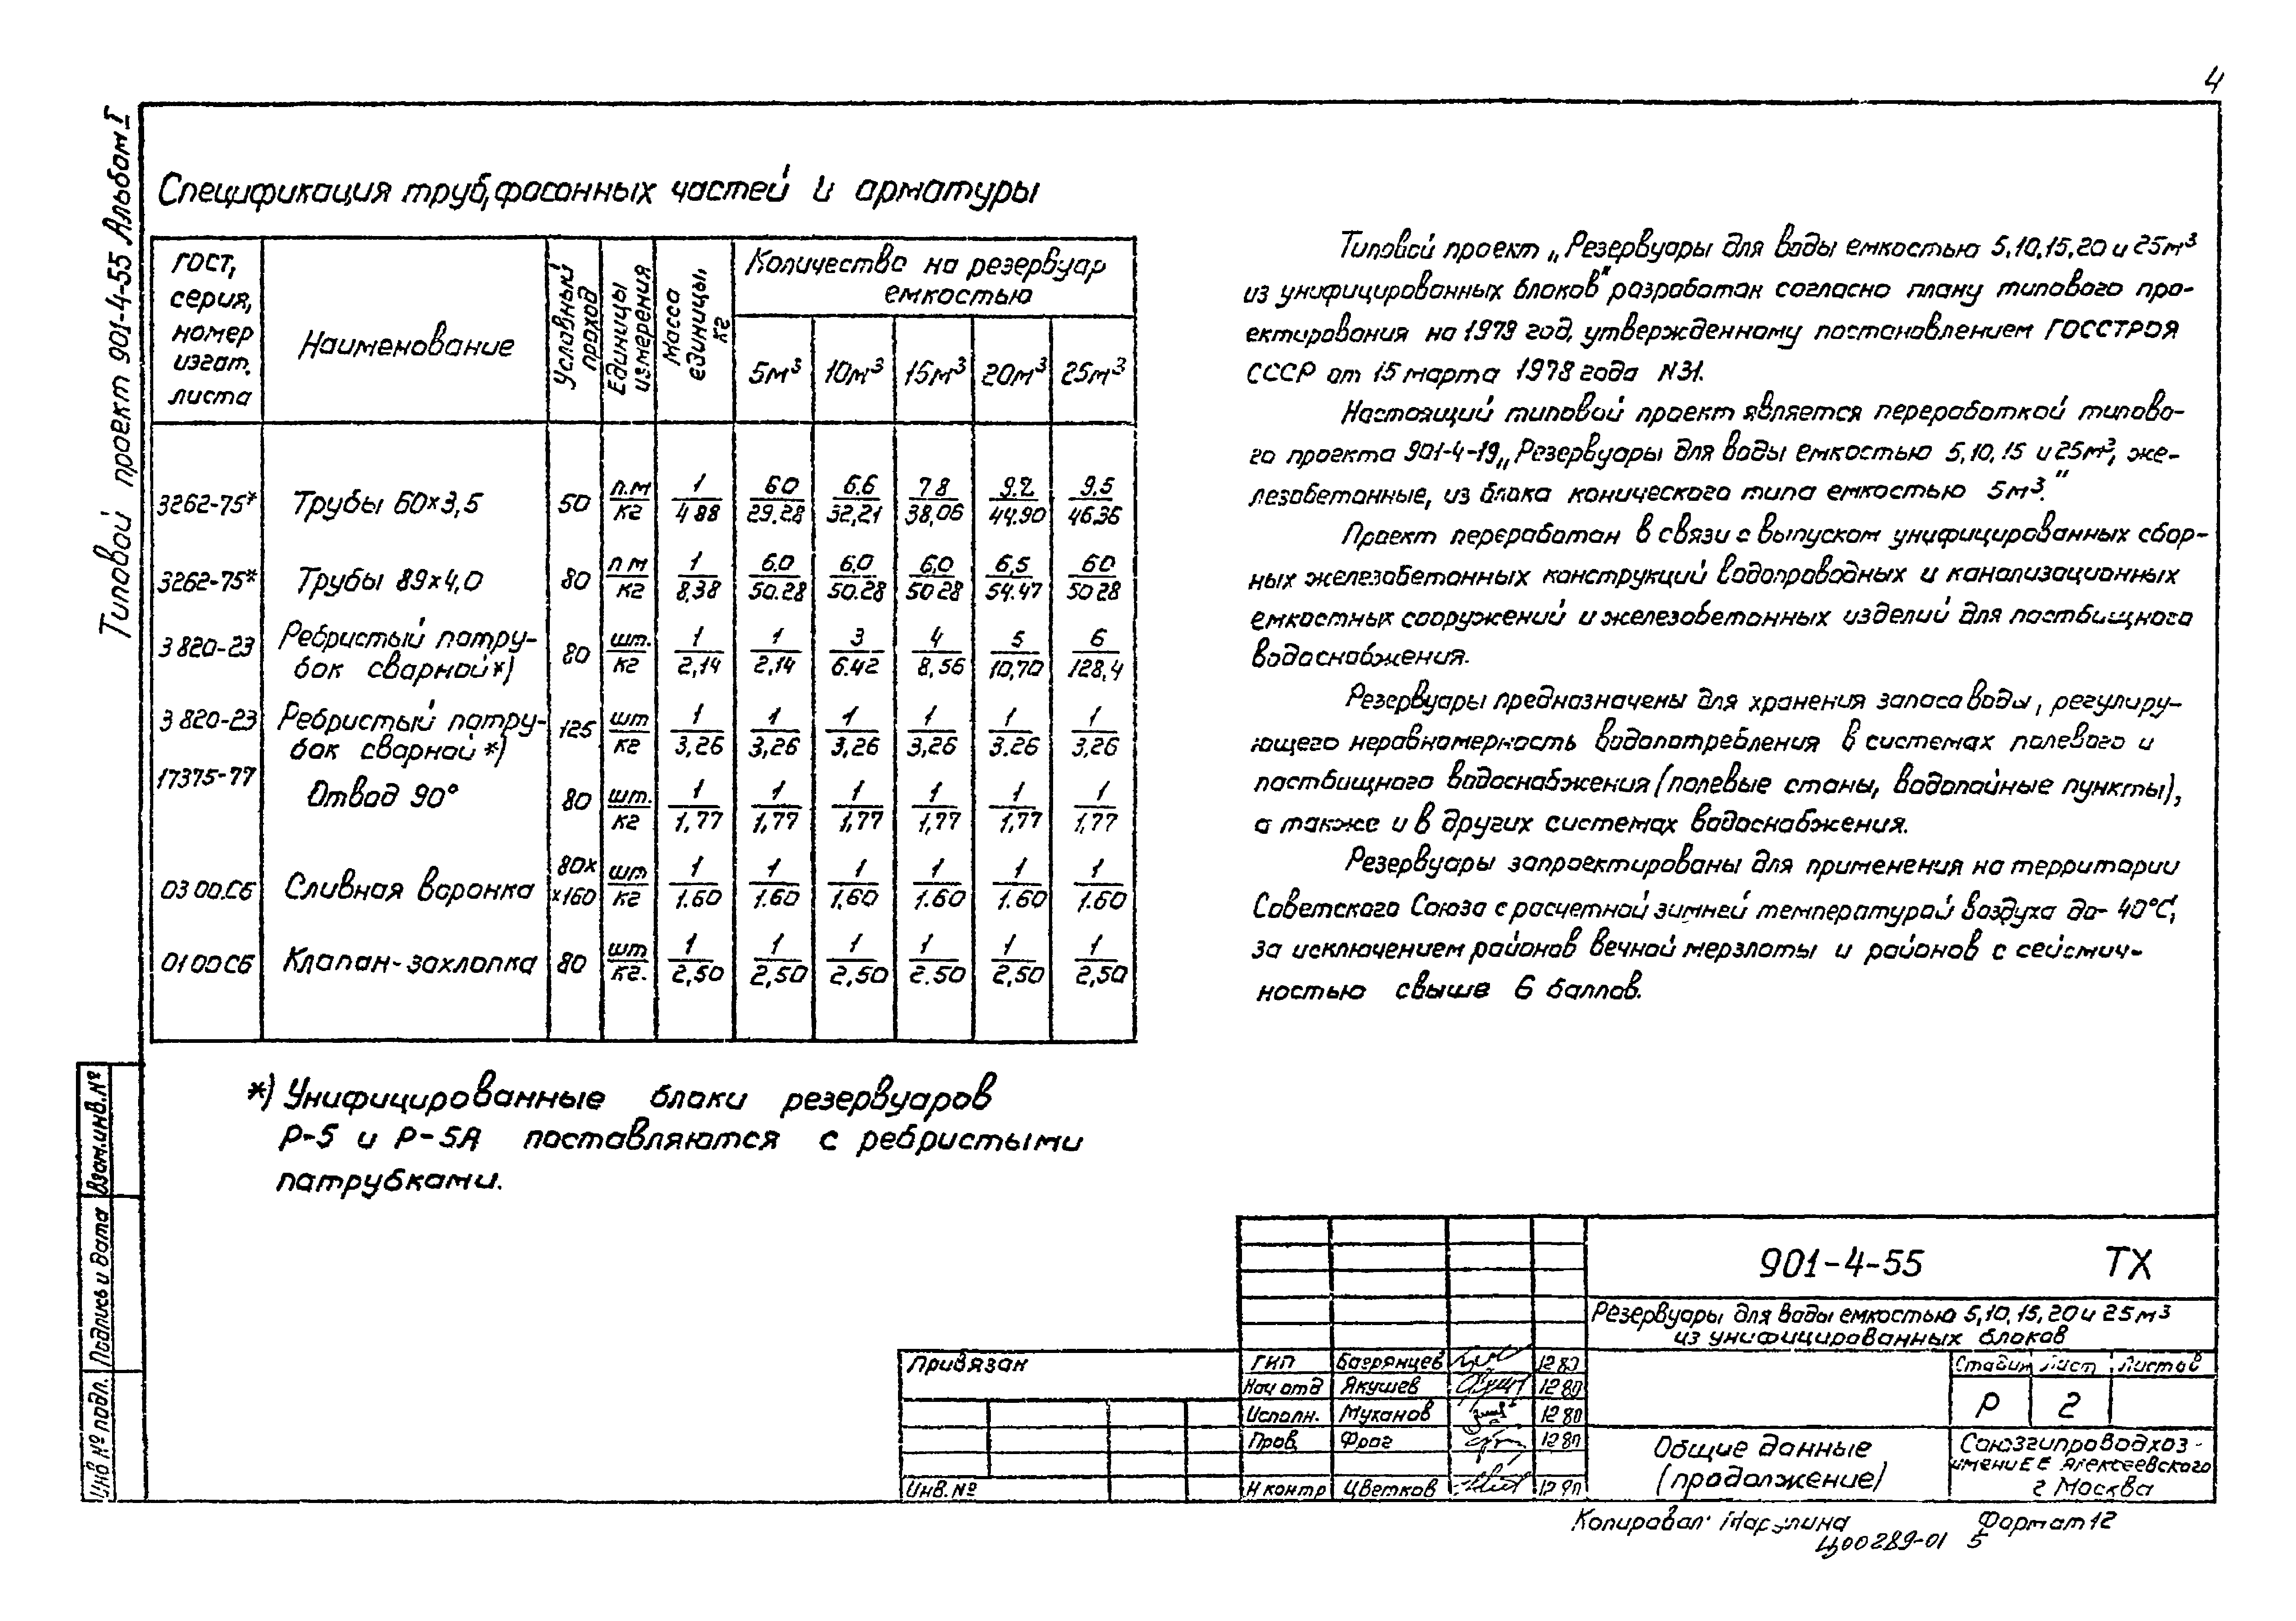 4
Типовой проект 901-4-55 Альбом I
Спецификация труб, фасонных частей и арматуры
ГОСТ, серия, номер изгот. листа | Наименование | Условный проход | Единицы измерения | Масса единицы, кг | Количество на резервуар емкостью
5м³ | 10м³ | 15м³ | 20м³ | 25м³
3262-75* | Трубы 60×3,5 | 50 | п.м/кг | 1/4 88 | 60/29.28 | 6.6/32,21 | 78/38,06 | 9.2/44.90 | 9.5/46.36
3262-75* | Трубы 89×4,0 | 80 | п м/кг | 1/8,38 | 6.0/50.28 | 6,0/50.28 | 6,0/50 28 | 6,5/54.47 | 60/50 28
3 820-23 | Ребристый патру-бок сварной*) | 80 | шт./кг | 1/2,14 | 1/2,14 | 3/6.42 | 4/8,56 | 5/10,70 | 6/128,4
3 820-23 | Ребристый патру-бок сварной*) | 125 | шт/кг | 1/3,26 | 1/3,26 | 1/3,26 | 1/3,26 | 1/3.26 | 1/3,26
17375-77 | Отвод 90° | 80 | шт./кг | 1/1,77 | 1/1,77 | 1/1,77 | 1/1,77 | 1/1,77 | 1/1,77
03 00.СБ | Сливная воронка | 80××160 | шт/кг | 1/1.60 | 1/1.60 | 1/1,60 | 1/1.60 | 1/1.60 | 1/1.60
01 00 СБ | Клапан-захлопка | 80 | шт/кг. | 1/2,50 | 1/2,50 | 1/2,50 | 1/2.50 | 1/2,50 | 1/2,50
*) Унифицированные блоки резервуаров
Р-5 и Р-5А поставляются с ребристыми
патрубками.
Типовой проект „Резервуары для воды емкостью 5,10,15,20 и 25м³
из унифицированных блоков" разработан согласно плану типового про-
ектирования на 1979 год, утвержденному постановлением ГОССТРОЯ
СССР от 15 марта 1978 года N31.
Настоящий типовой проект является переработкой типово-
го проекта 901-4-19 „Резервуары для воды емкостью 5,10,15 и 25м³, же-
лезобетонные, из блока конического типа емкостью 5м³."
Проект переработан в связи с выпуском унифицированных сбор-
ных железобетонных конструкций водопроводных и канализационных
емкостных сооружений и железобетонных изделий для пастбищного
водоснабжения.
Резервуары предназначены для хранения запаса воды, регулиру-
ющего неравномерность водопотребления в системах полевого и
пастбищного водоснабжения (полевые станы, водопойные пункты),
а также и в других системах водоснабжения.
Резервуары запроектированы для применения на территории
Советского Союза с расчетной зимней температурой воздуха до -40°С,
за исключением районов вечной мерзлоты и районов с сейсмич-
ностью свыше 6 баллов.
Взам.инв.№
Подпись и дата
Инв № подл.
901-4-55 ТХ
Резервуары для воды емкостью 5,10,15,20 и 25м³
из унифицированных блоков
Привязан
ГИП Багрянцев 12 80
Нач отд Якушев 12 80
Исполн. Муханов 12 80
Пров. Фрог 12 80
Н контр Цветков
Инв. №
Стадия Лист Листов
Р 2
Общие данные
(продолжение)
Союзгипроводхоз
имени Е Е Алексеевского
г Москва
Копировал: Формат 12
Ц00289-01 5